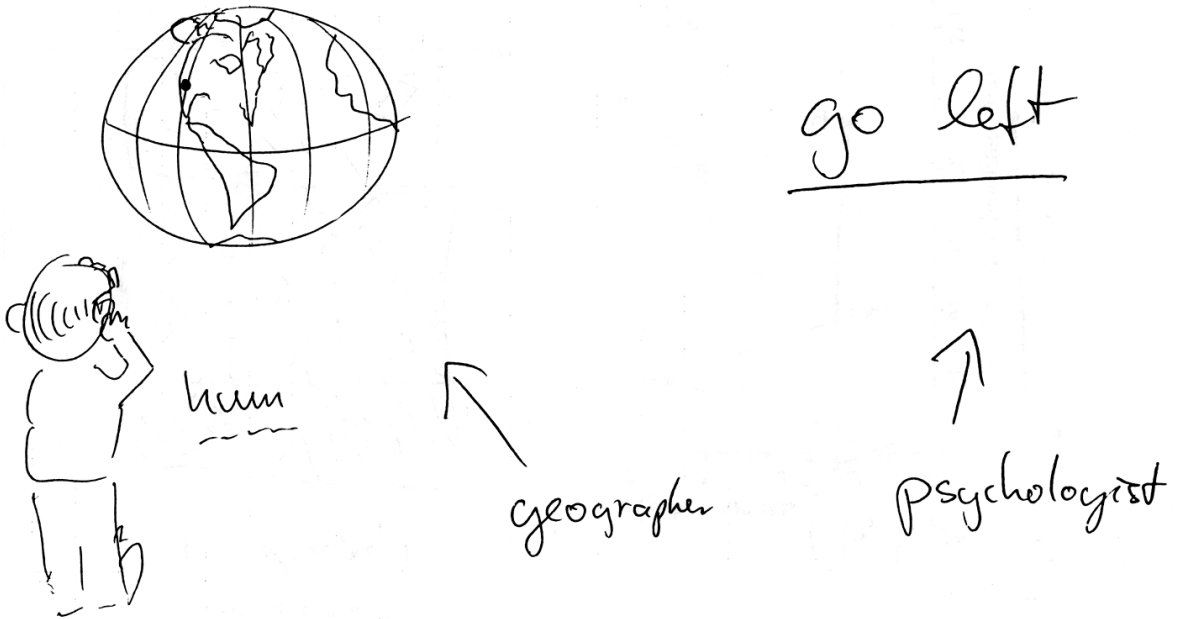 go left
hum
geographer
psychologist